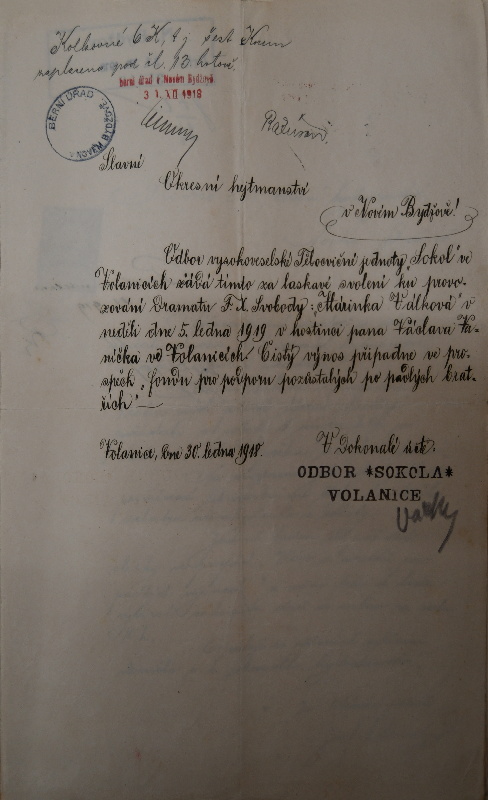 Kolkovné 6 K, t.j. šest Korun
zaplaceno pod čl. 13 hotově.
berní úřad v Novém Bydžově
3 1. XII 1918
BERNÍ ÚŘAD
Slavné
Okresní hejtmanství
v Novém Bydžově!
Odbor vysokoveselské Tělocvičné jednoty "Sokol" ve
Volanicích žádá tímto za laskavé svolení ku provo-
zování dramatu F. X. Svobody: "Márinka Válková" v
neděli dne 5. ledna 1919 v hostinci pana Václava Va-
níčka ve Volanicích. Čistý výnos připadne ve pro-
spěch "fondu pro podporu pozůstalých po padlých brat-
řích".
Volanice, dne 30. ledna 1918.
V dokonalé úctě:
ODBOR *SOKOLA*
VOLANICE